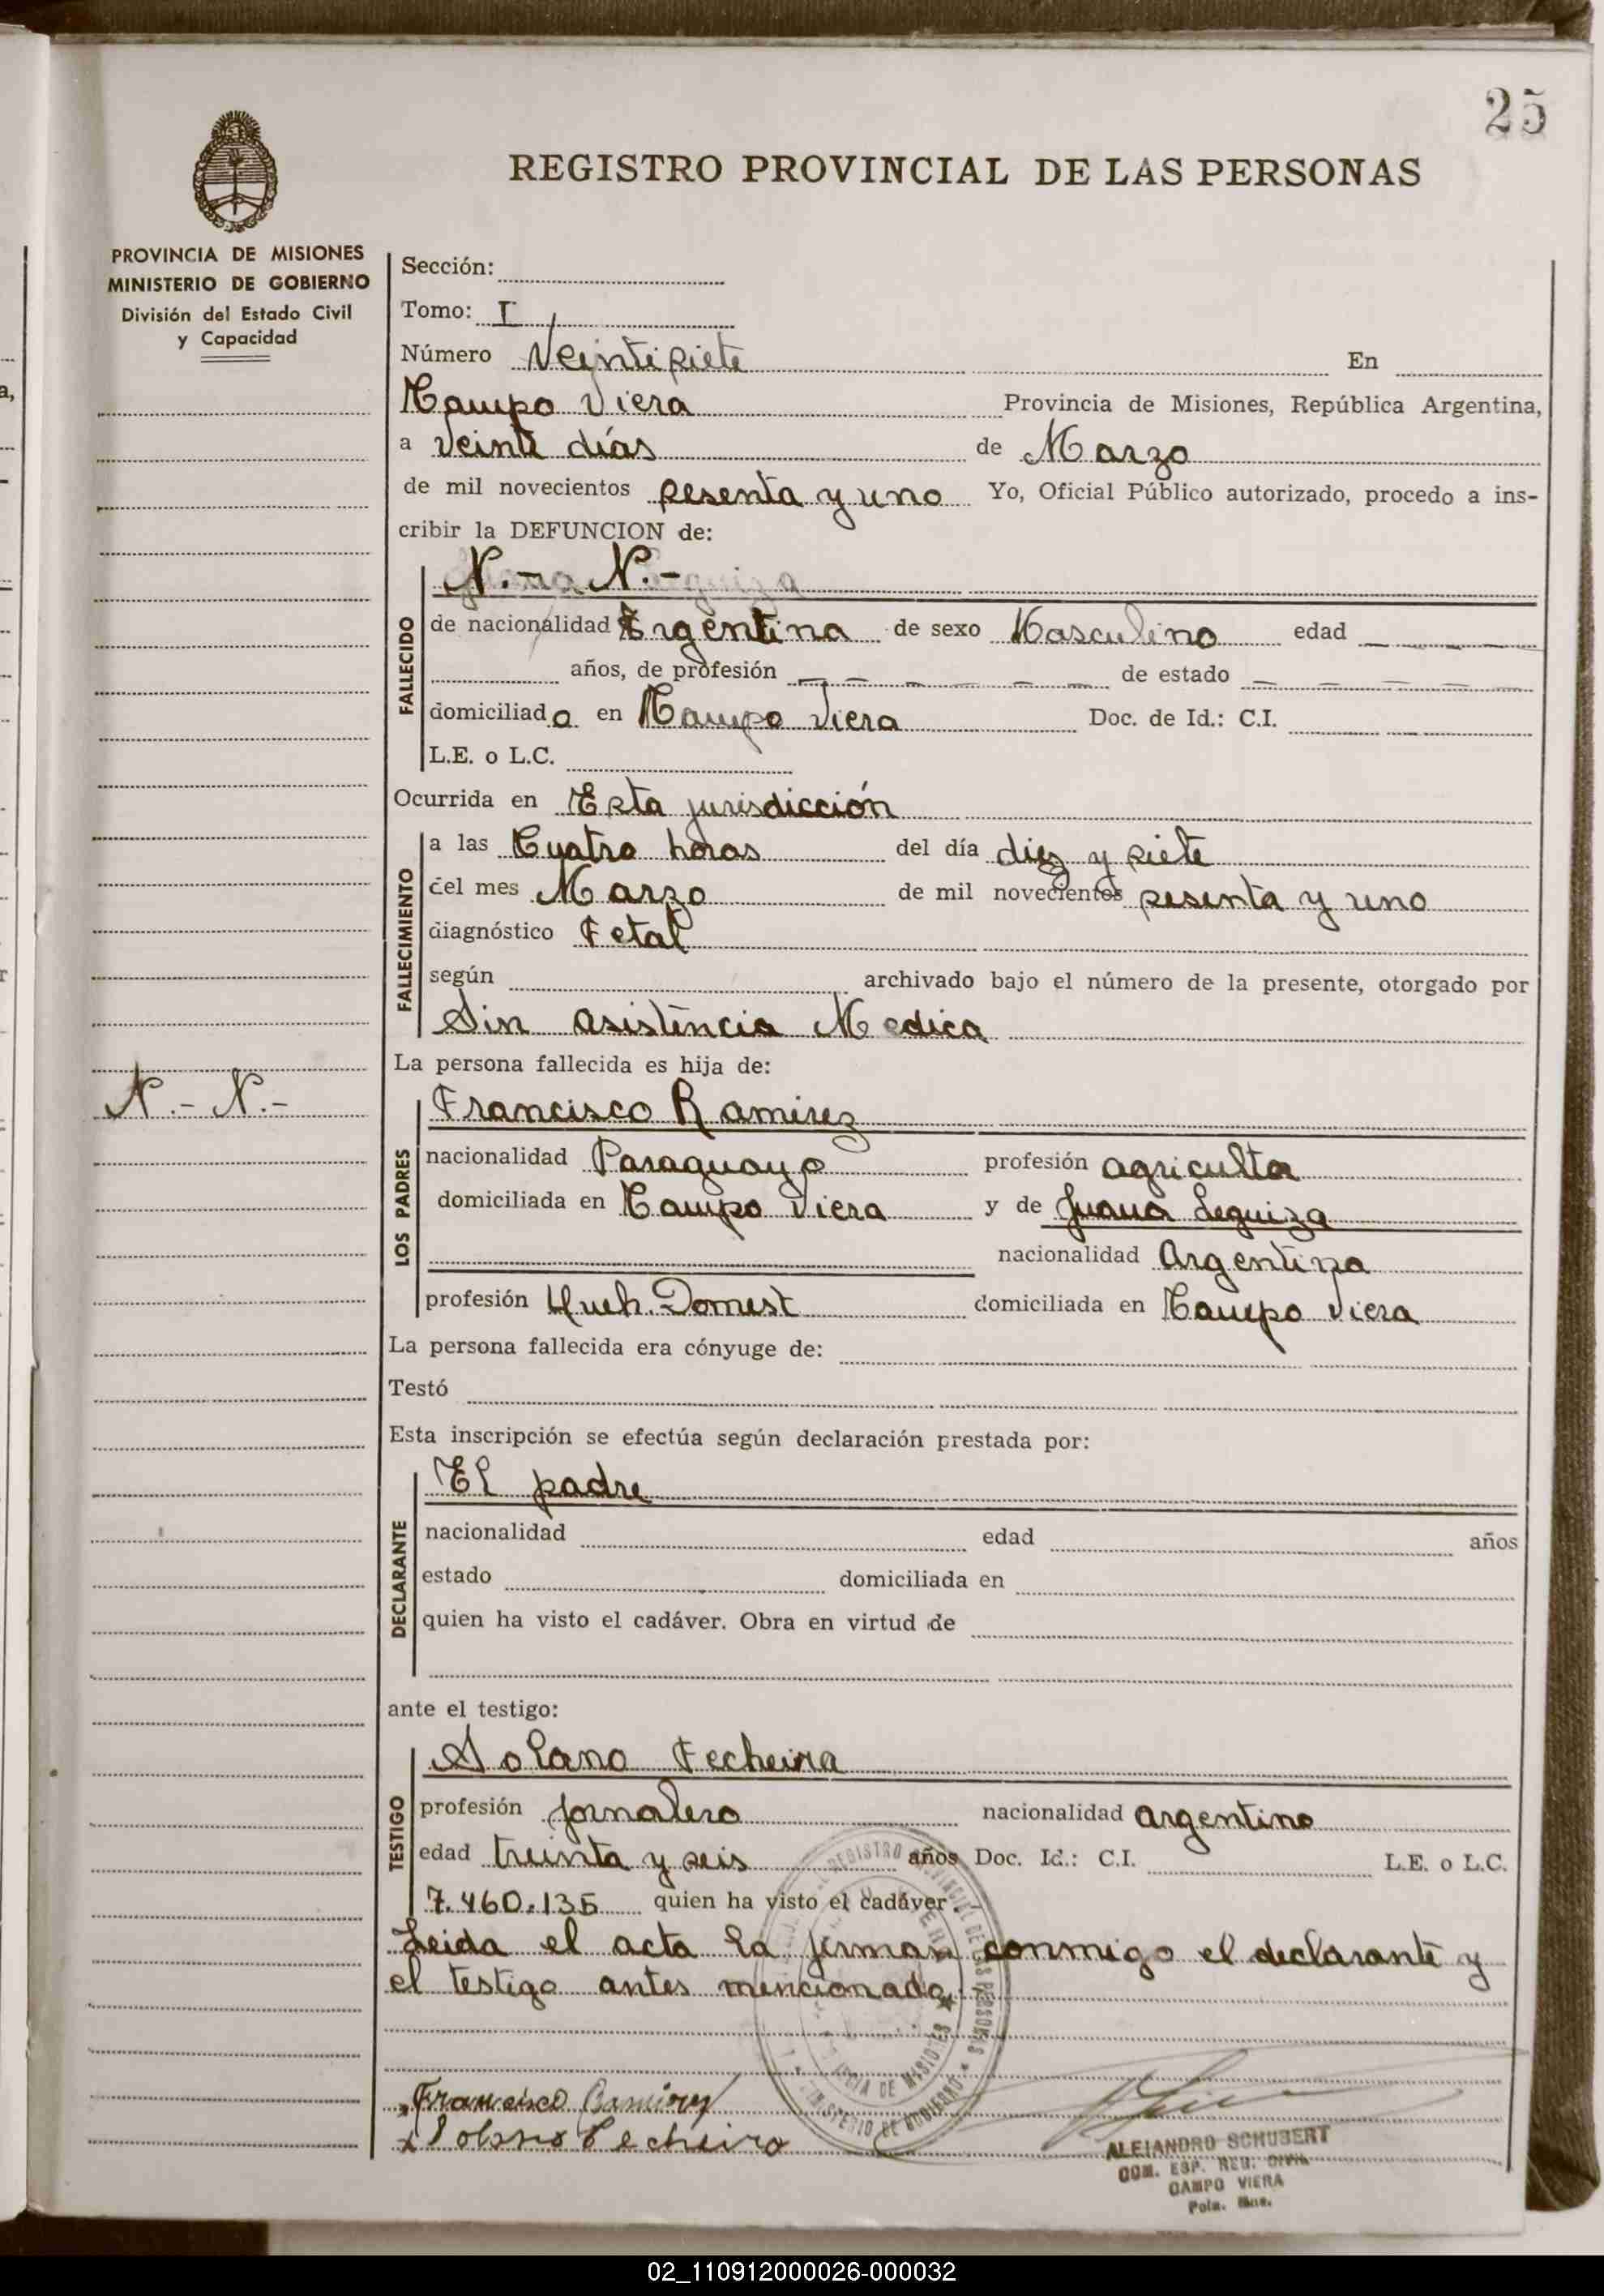 25
REGISTRO PROVINCIAL DE LAS PERSONAS
PROVINCIA DE MISIONES
MINISTERIO DE GOBIERNO
División del Estado Civil
y Capacidad
Sección:
Tomo: I
Número Veintisiete En
Campo Viera Provincia de Misiones, República Argentina,
a veinte días de Marzo
de mil novecientos sesenta y uno Yo, Oficial Público autorizado, procedo a ins-
cribir la DEFUNCION de:
N.- N.-
FALLECIDO
de nacionalidad Argentina de sexo Masculino edad
años, de profesión de estado
domiciliado en Campo Viera Doc. de Id.: C.I.
L.E. o L.C.
Ocurrida en Esta jurisdicción
FALLECIMIENTO
a las Cuatro horas del día diez y siete
del mes Marzo de mil novecientos sesenta y uno
diagnóstico Fetal
según archivado bajo el número de la presente, otorgado por
Sin asistencia Medica
La persona fallecida es hija de:
N.- N.-
LOS PADRES
Francisco Ramirez
nacionalidad Paraguayo profesión agriculta
domiciliada en Campo Viera y de Juana Leguiza
nacionalidad Argentina
profesión Queh. Domest domiciliada en Campo Viera
La persona fallecida era cónyuge de:
Testó
Esta inscripción se efectúa según declaración prestada por:
DECLARANTE
El padre
nacionalidad edad años
estado domiciliada en
quien ha visto el cadáver. Obra en virtud de
ante el testigo:
TESTIGO
Solano Fecheira
profesión Jornalero nacionalidad argentino
edad treinta y seis años Doc. Id.: C.I. L.E. o L.C.
7.460.135 quien ha visto el cadáver.-
Leida el acta la firman conmigo el declarante y
el testigo antes mencionado
REGISTRO PROVINCIAL DE LAS PERSONAS
MINISTERIO DE GOBIERNO
Francisco Ramirez
Solano Fecheira
ALEJANDRO SCHUBERT
COM. ESP. REG. CIVIL
CAMPO VIERA
Pcia. Mnes.
02_110912000026-000032